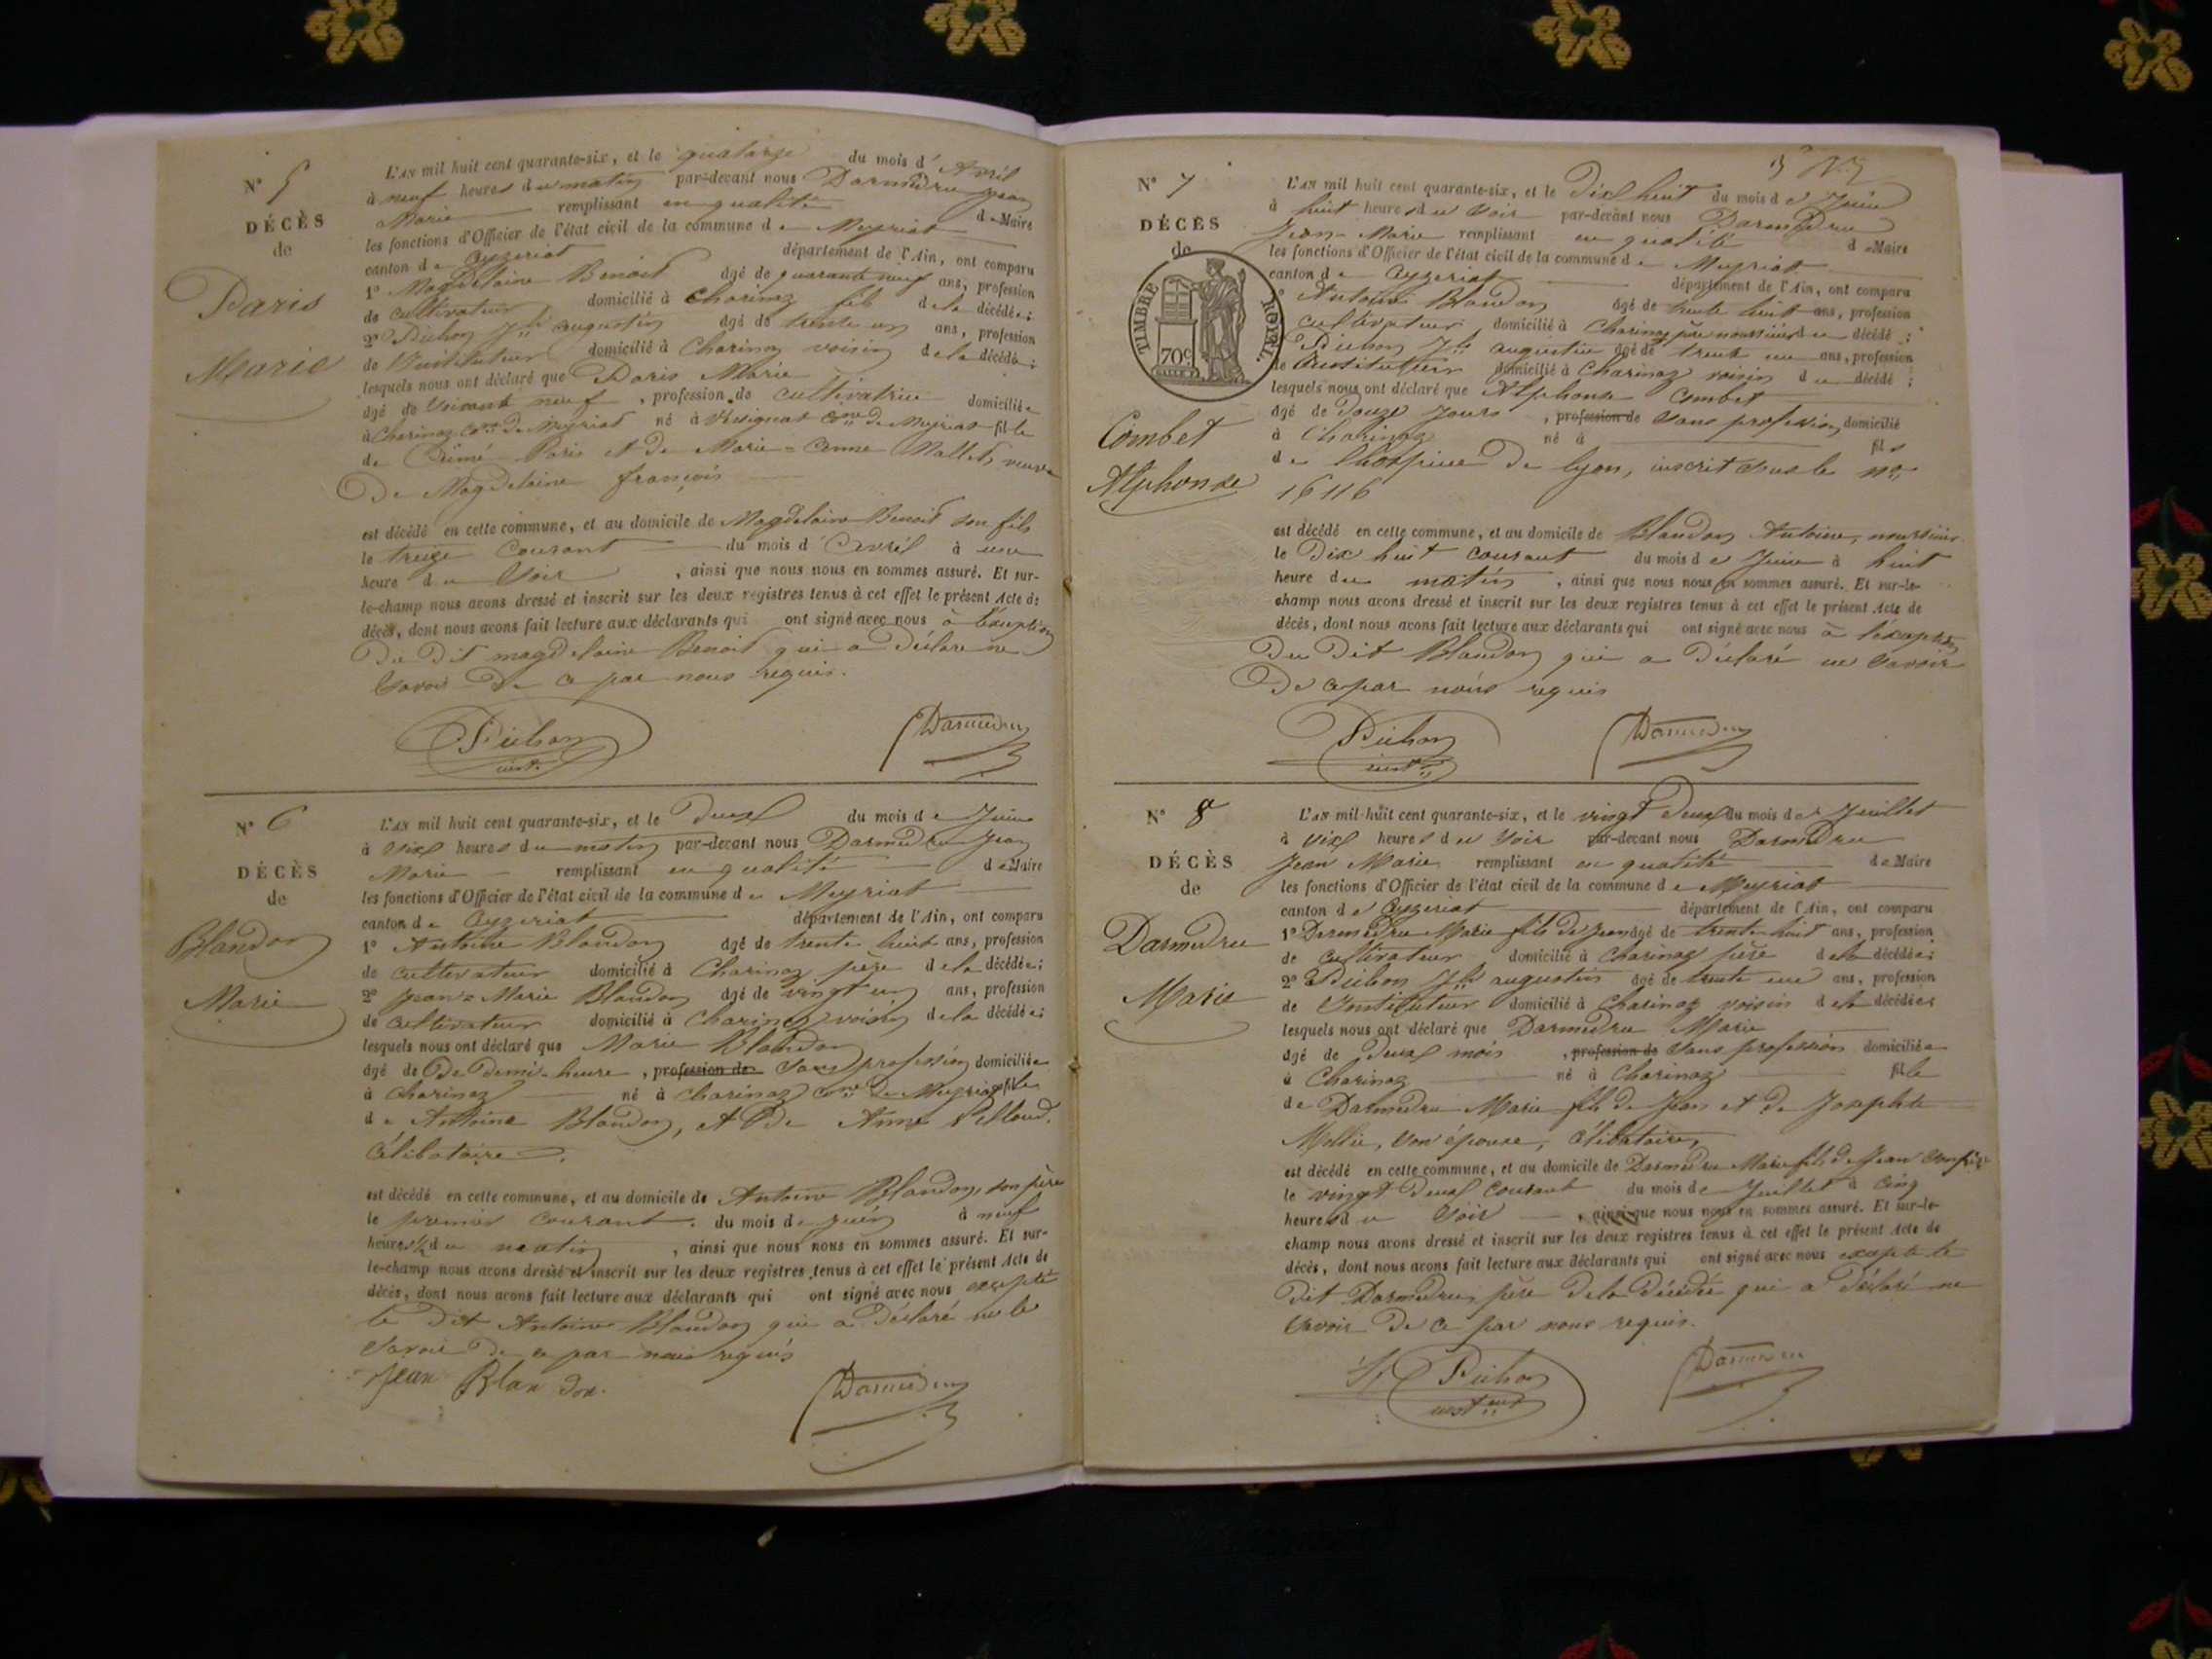 N° 5
DÉCÈS
de
Paris
Marie
L'AN mil huit cent quarante-six, et le quatorze du mois d' Avril
à neuf heures du matin par-devant nous Darmedru Jean
Marie remplissant en qualité de Maire
les fonctions d'Officier de l'état civil de la commune de Meyriat
canton de Ceyzeriat département de l'Ain, ont comparu
1° Magdelaine Benoit âgé de quarante neuf ans, profession
de cultivateur domicilié à Charinaz fils de la décédée;
2° Pichon Jh augustin âgé de trente un ans, profession
de Instituteur domicilié à Charinaz voisin de la décédée;
lesquels nous ont déclaré que Paris Marie
âgé de soixante neuf, profession de cultivatrice domiciliée
à Charinaz cne De Meyriat né à cne De Meyriat fille
de Paris et De Marie-Anne Mallet, veuve
De Magdelaine françois
est décédé en cette commune, et au domicile de Magdelaine Benoit son fils
le treize courant du mois d' avril à une
heure du Soir, ainsi que nous nous en sommes assuré. Et sur-
le-champ nous avons dressé et inscrit sur les deux registres tenus à cet effet le présent Acte de
décès, dont nous avons fait lecture aux déclarants qui ont signé avec nous à l'exception
Du Dit magdelaine Benoit qui a Déclaré ne
Savoir De ce par nous requis.
Pichon Darmedru
inst.
N° 6
DÉCÈS
de
Blandon
Marie
L'AN mil huit cent quarante-six, et le Deux du mois de Juin
à Six heures du matin par-devant nous Darmedru Jean
Marie remplissant en qualité de Maire
les fonctions d'Officier de l'état civil de la commune de Meyriat
canton de Ceyzeriat département de l'Ain, ont comparu
1° Antoine Blandon âgé de trente huit ans, profession
de cultivateur domicilié à Charinaz père de la décédée;
2° Jean-Marie Blandon âgé de vingt un ans, profession
de cultivateur domicilié à Charinaz voisin de la décédée;
lesquels nous ont déclaré que Marie Blandon
âgé de De Demi-heure, profession de Sans profession domiciliée
à Charinaz né à Charinaz cne De Meyriat fille
de Antoine Blandon, et De Anne Pelloud.
Célibataire.
est décédé en cette commune, et au domicile de Antoine Blandon, son père
le premier courant. du mois de juin à neuf
heures ½ du matin, ainsi que nous nous en sommes assuré. Et sur-
le-champ nous avons dressé et inscrit sur les deux registres tenus à cet effet le présent Acte de
décès, dont nous avons fait lecture aux déclarants qui ont signé avec nous excepté
le Dit Antoine Blandon qui a Déclaré ne le
Savoir De ce par nous requis
Jean Blandon. Darmedru
N° 7
DÉCÈS
de
TIMBRE ROYAL.
70c
Combet
Alphonse
L'AN mil huit cent quarante-six, et le Dix huit du mois de Juin
à huit heures du Soir par-devant nous Darmedru
Jean-Marie remplissant en qualité de Maire
les fonctions d'Officier de l'état civil de la commune de Meyriat
canton de Ceyzeriat département de l'Ain, ont comparu
1° Antoine Blandon âgé de trente huit ans, profession
cultivateur domicilié à Charinaz père nourricier du décédé;
Pichon Jh augustin âgé de trente un ans, profession
de Instituteur domicilié à Charinaz voisin du décédé;
lesquels nous ont déclaré que Alphonse Combet
âgé de Douze Jours, profession de Sans profession domicilié
à Charinaz né à fils
de l'hospice De Lyon, inscrit Sous le no
16116
est décédé en cette commune, et au domicile de Blandon Antoine, nourricier
le Dix huit courant du mois de Juin à huit
heure du matin, ainsi que nous nous en sommes assuré. Et sur-le-
champ nous avons dressé et inscrit sur les deux registres tenus à cet effet le présent Acte de
décès, dont nous avons fait lecture aux déclarants qui ont signé avec nous à l'exception
Du Dit Blandon qui a Déclaré ne Savoir
De ce par nous requis
Pichon Darmedru
inst
N° 8
DÉCÈS
de
Darmedru
Marie
L'AN mil huit cent quarante-six, et le vingt Deux du mois de Juillet
à Six heures du Soir par-devant nous Darmedru
Jean Marie remplissant en qualité de Maire
les fonctions d'Officier de l'état civil de la commune de Meyriat
canton de Ceyzeriat département de l'Ain, ont comparu
1° Darmedru Marie fils de Jean âgé de trente huit ans, profession
de cultivateur domicilié à Charinaz père de la décédée;
2° Pichon Jh augustin âgé de trente un ans, profession
de Instituteur domicilié à Charinaz voisin de la décédée;
lesquels nous ont déclaré que Darmedru Marie
âgé de Deux mois, profession de Sans profession domiciliée
à Charinaz né à Charinaz fille
de Darmedru Marie fils de Jean et De Josephte
Mollie, Son épouse, Célibataire,
est décédé en cette commune, et au domicile de Darmedru Marie fils de Jean Son père
le vingt Deux courant du mois de Juillet à cinq
heures du Soir, ainsi que nous nous en sommes assuré. Et sur-le-
champ nous avons dressé et inscrit sur les deux registres tenus à cet effet le présent Acte de
décès, dont nous avons fait lecture aux déclarants qui ont signé avec nous excepté le
Dit Darmedru, père De la Décédée qui a Déclaré ne
Savoir De ce par nous requis.
Pichon Darmedru